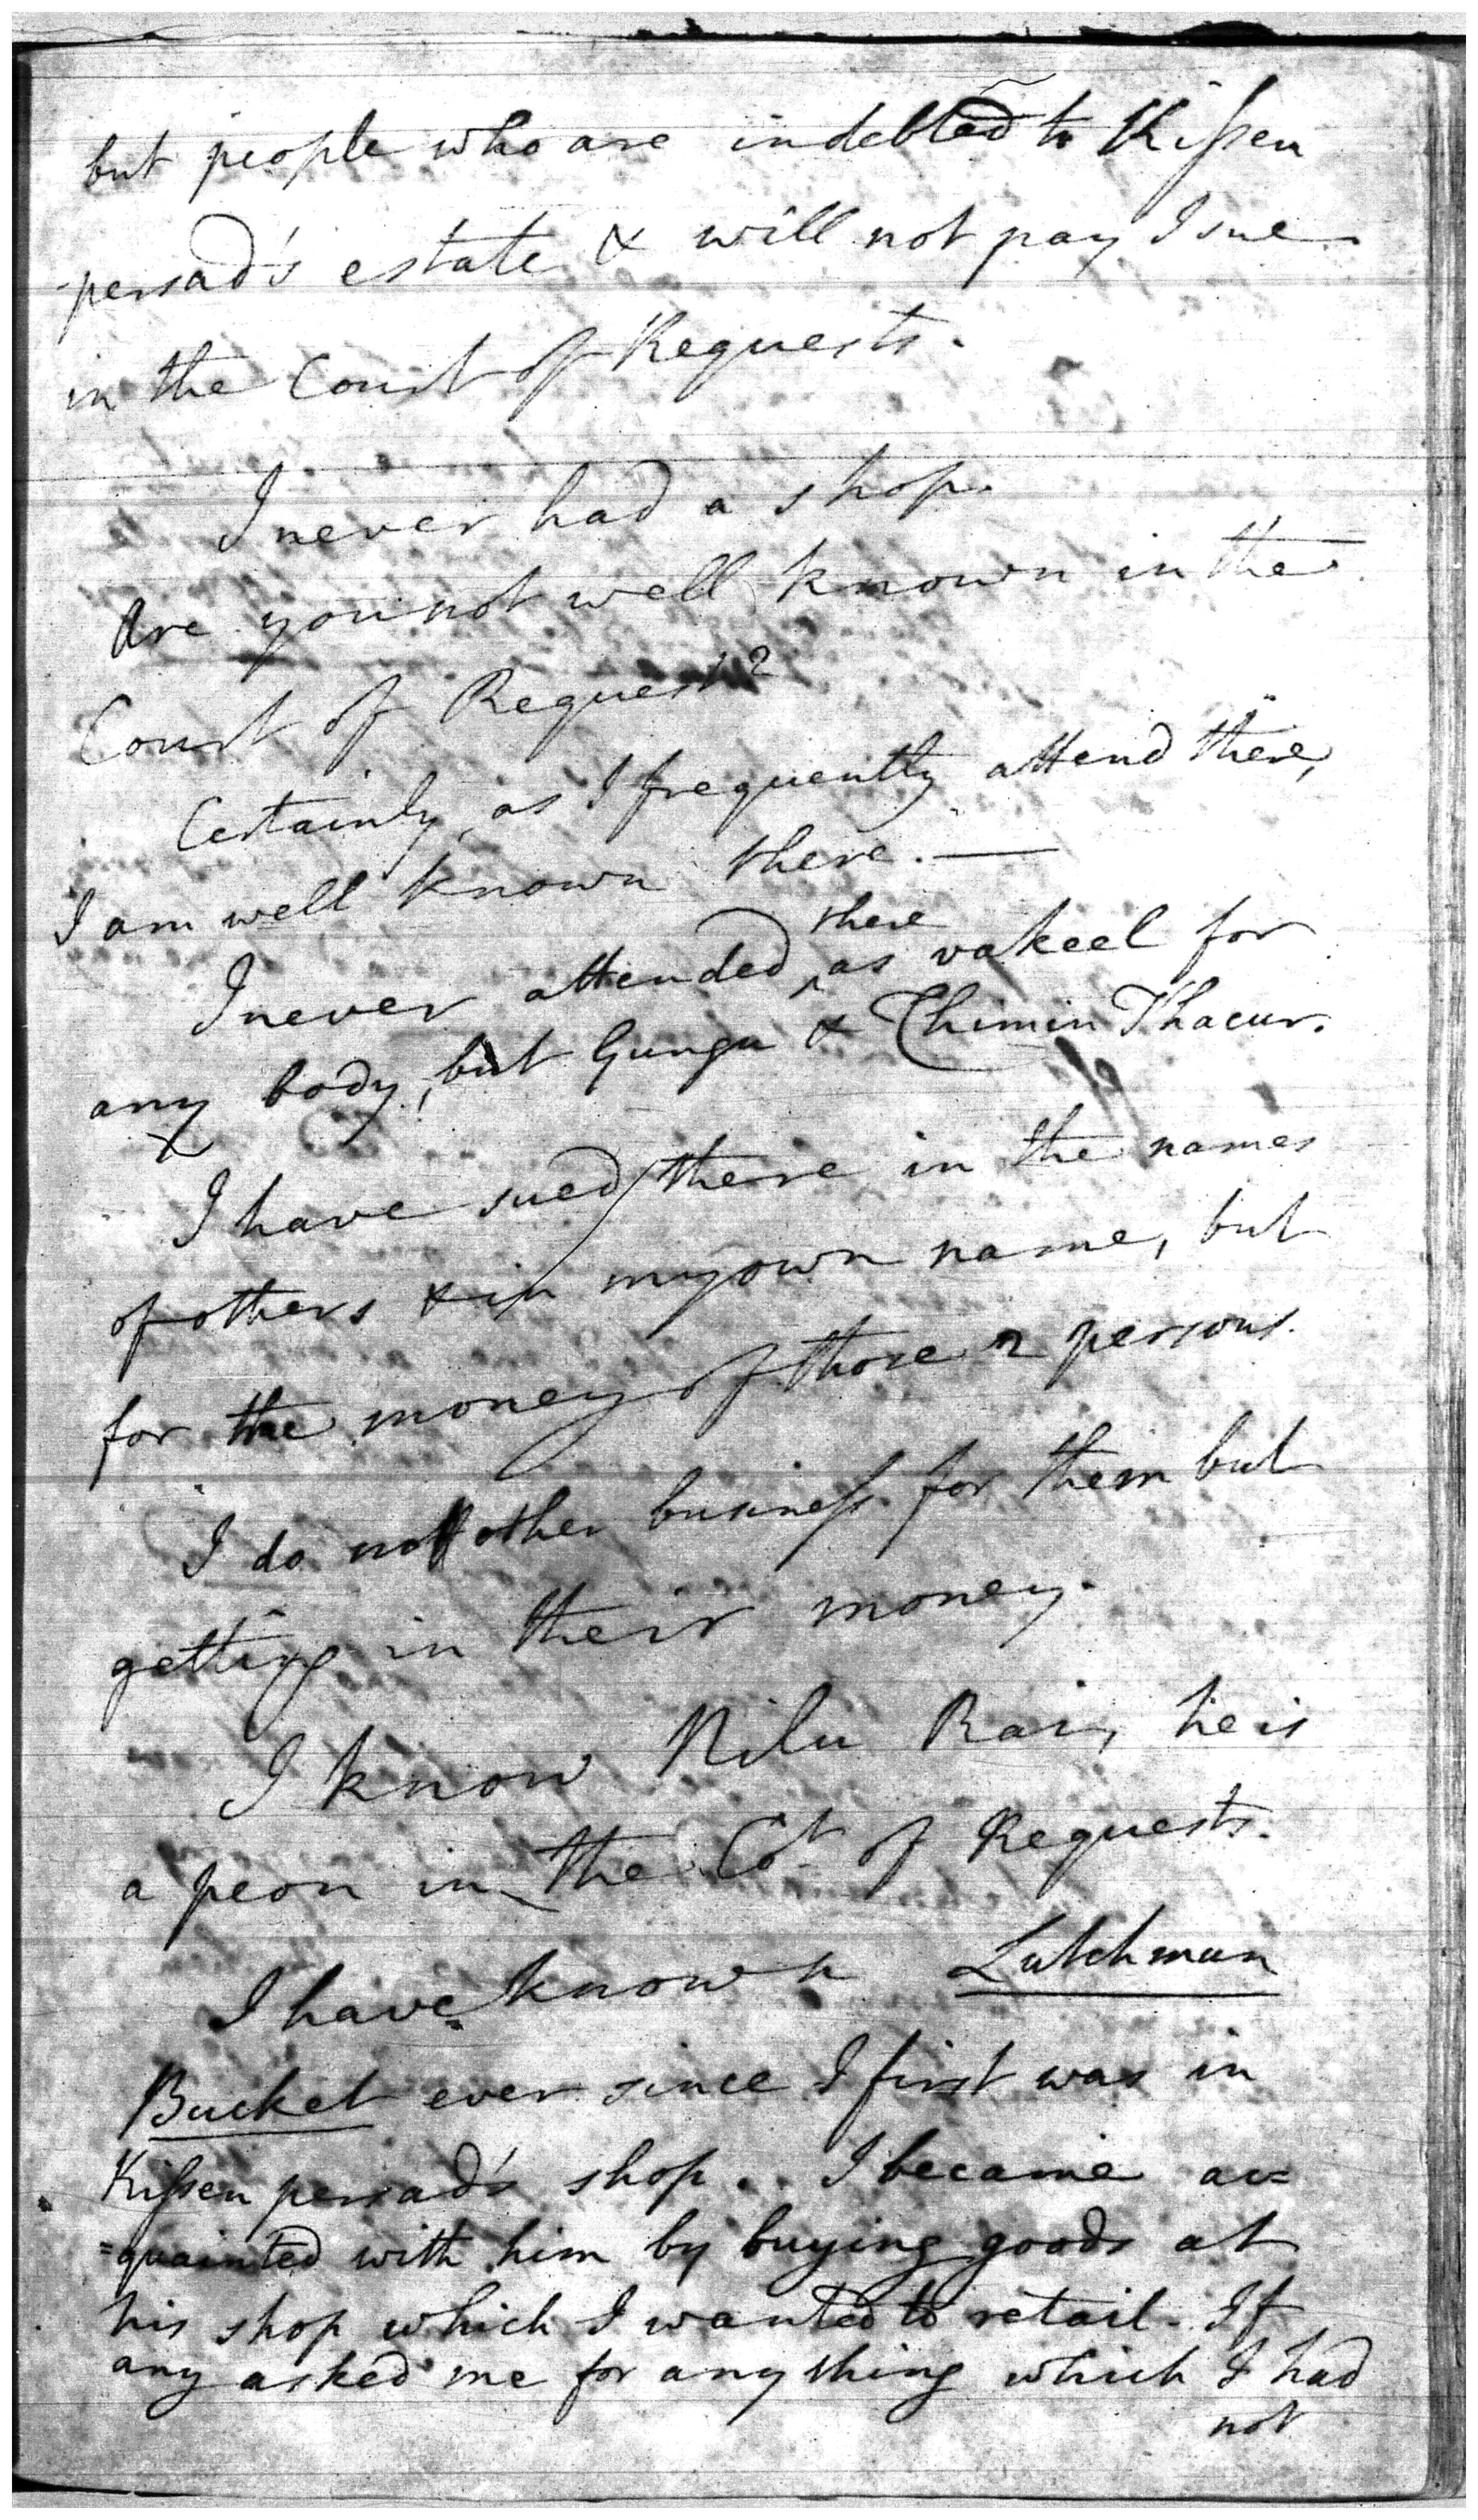 but people who are indebted to Kissen
persad's estate & will not pay I sue
in the Court of Requests.
I never had a shop.
Are you not well known in the
Court of Requests?
Certainly, as I frequently attend there,
I am well known there. —
I never attended ^there as vakeel for
any body, but Gunga & Chimin Thacur.
I have sued there in the names
of others & in my own name, but
for the money of those 2 persons.
I do no other business for them but
getting in their money.
I know Nilu Rai, he is
a peon in the Cot of Requests.
I have known Lutchmun
Bucket ever since I first was in
Kissen persad's shop. I became ac=
=quainted with him by buying goods at
his shop which I wanted to retail. If
any asked me for any thing which I had
not